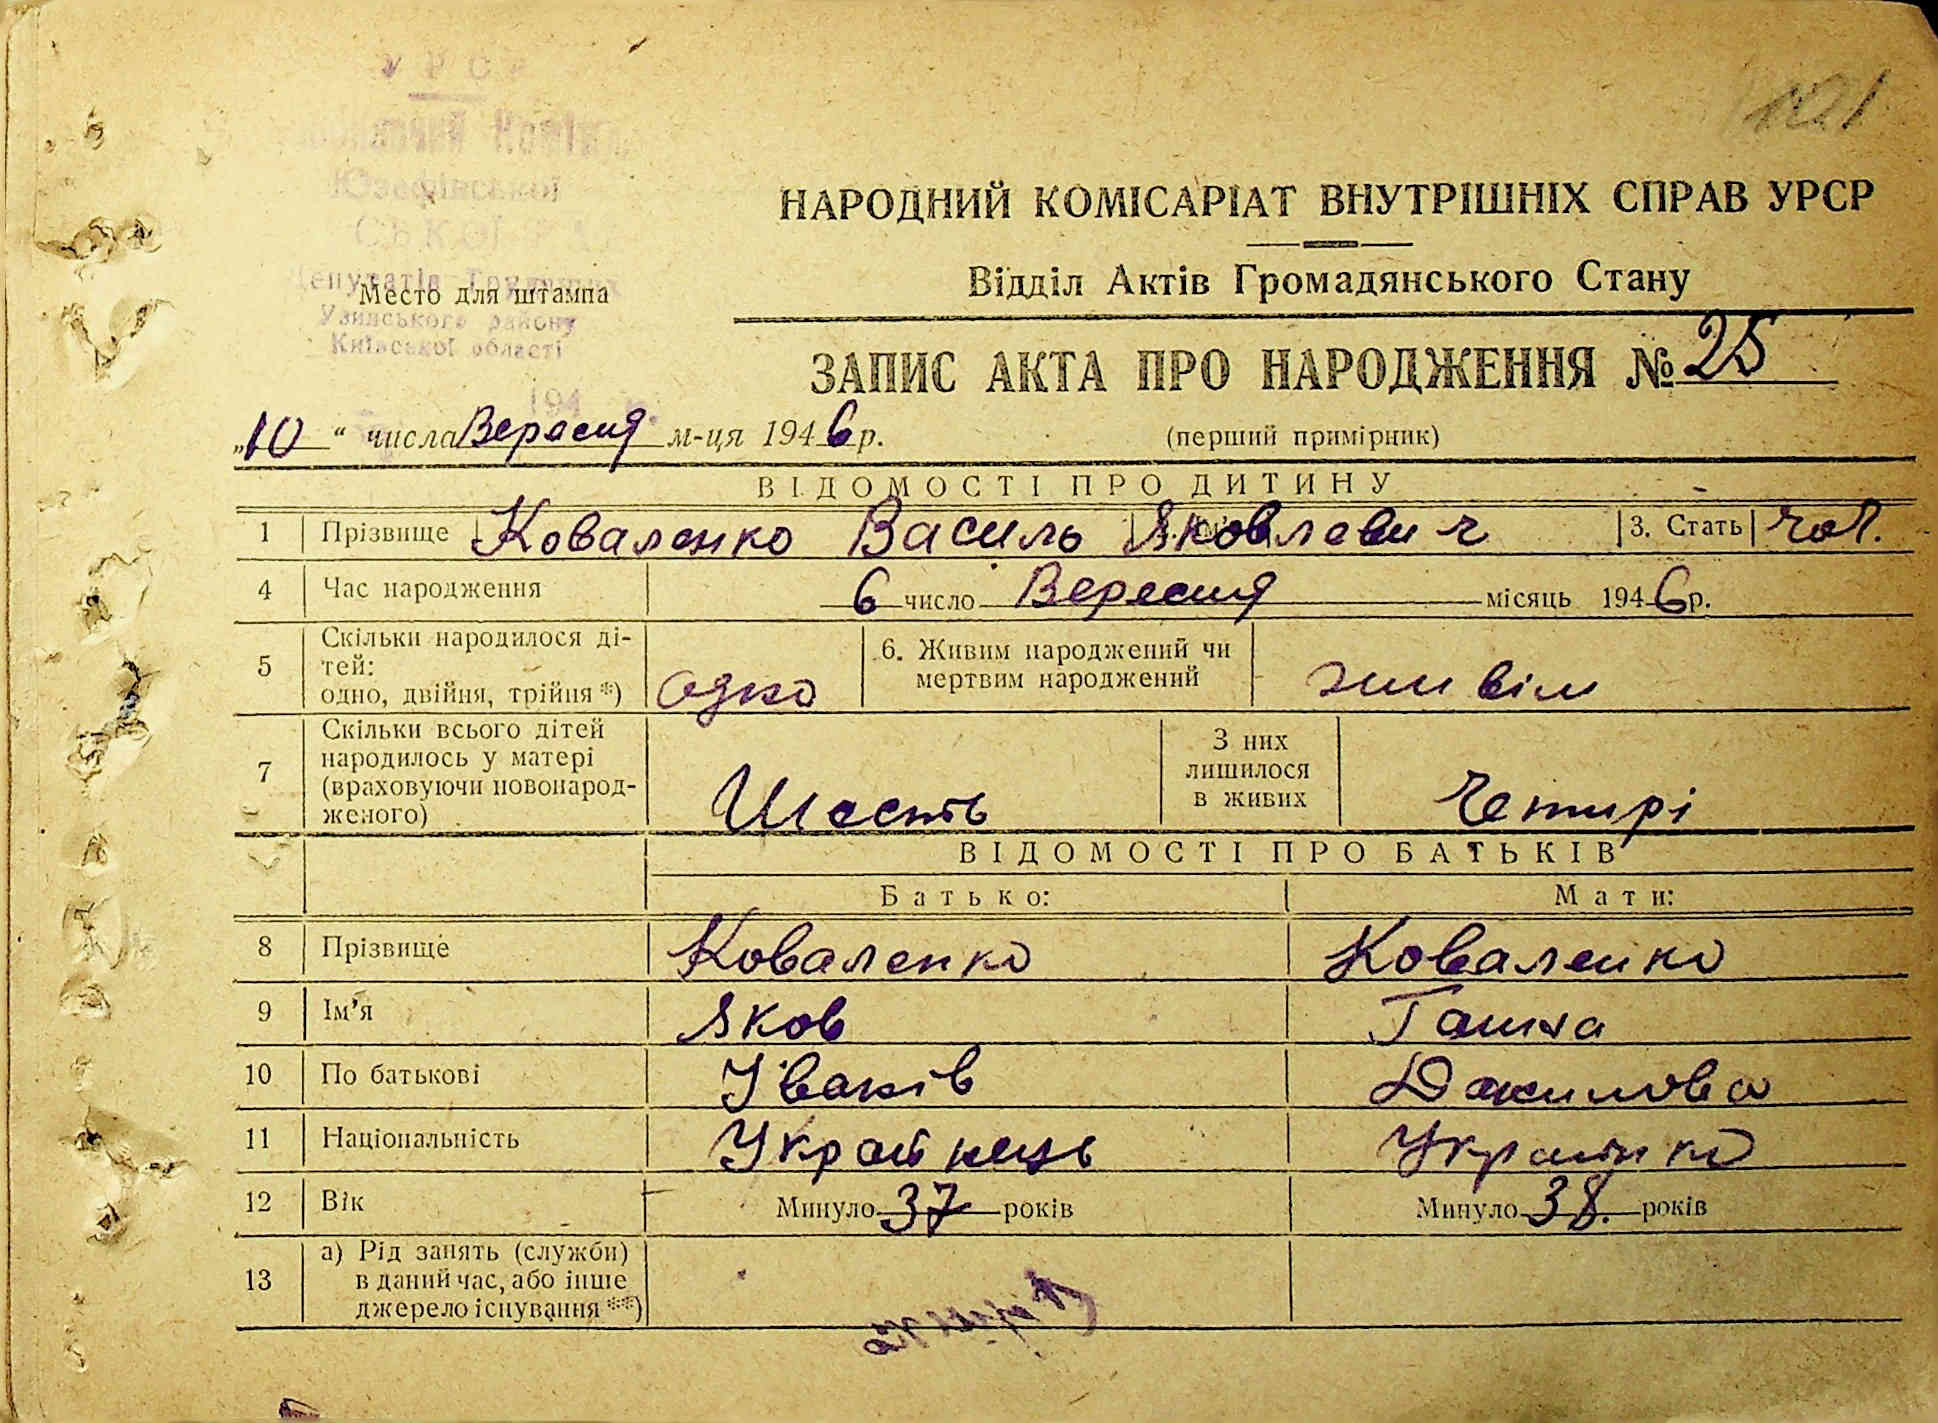 УРСР
121
Юзефівської
НАРОДНИЙ КОМІСАРІАТ ВНУТРІШНІХ СПРАВ УРСР
СЬКОЇ
Відділ Актів Громадянського Стану
Депутатів Трудящих
Место для штампа
Узинського району
Київської області
ЗАПИС АКТА ПРО НАРОДЖЕННЯ № 25
194 р.
„10“ числа Вересня м-ця 1946 р. (перший примірник)
ВІДОМОСТІ ПРО ДИТИНУ
1 Прізвище Коваленко Василь Яковлевич 3. Стать чол.
4 Час народження 6 число Вересня місяць 1946 р.
5 Скільки народилося ді-
тей:
одно, двійня, трійня *) одно 6. Живим народжений чи
мертвим народжений живім
7 Скільки всього дітей
народилось у матері
(враховуючи новонарод-
женого) Шесть З них
лишилося
в живих Четирі
ВІДОМОСТІ ПРО БАТЬКІВ
Батько: Мати:
8 Прізвище Коваленко Коваленко
9 Ім’я Яков Ганна
10 По батькові Іванів Данилова
11 Національність Українець Українка
12 Вік Минуло 37 років Минуло 38. років
13 а) Рід занять (служби)
в даний час, або інше
джерело існування **)